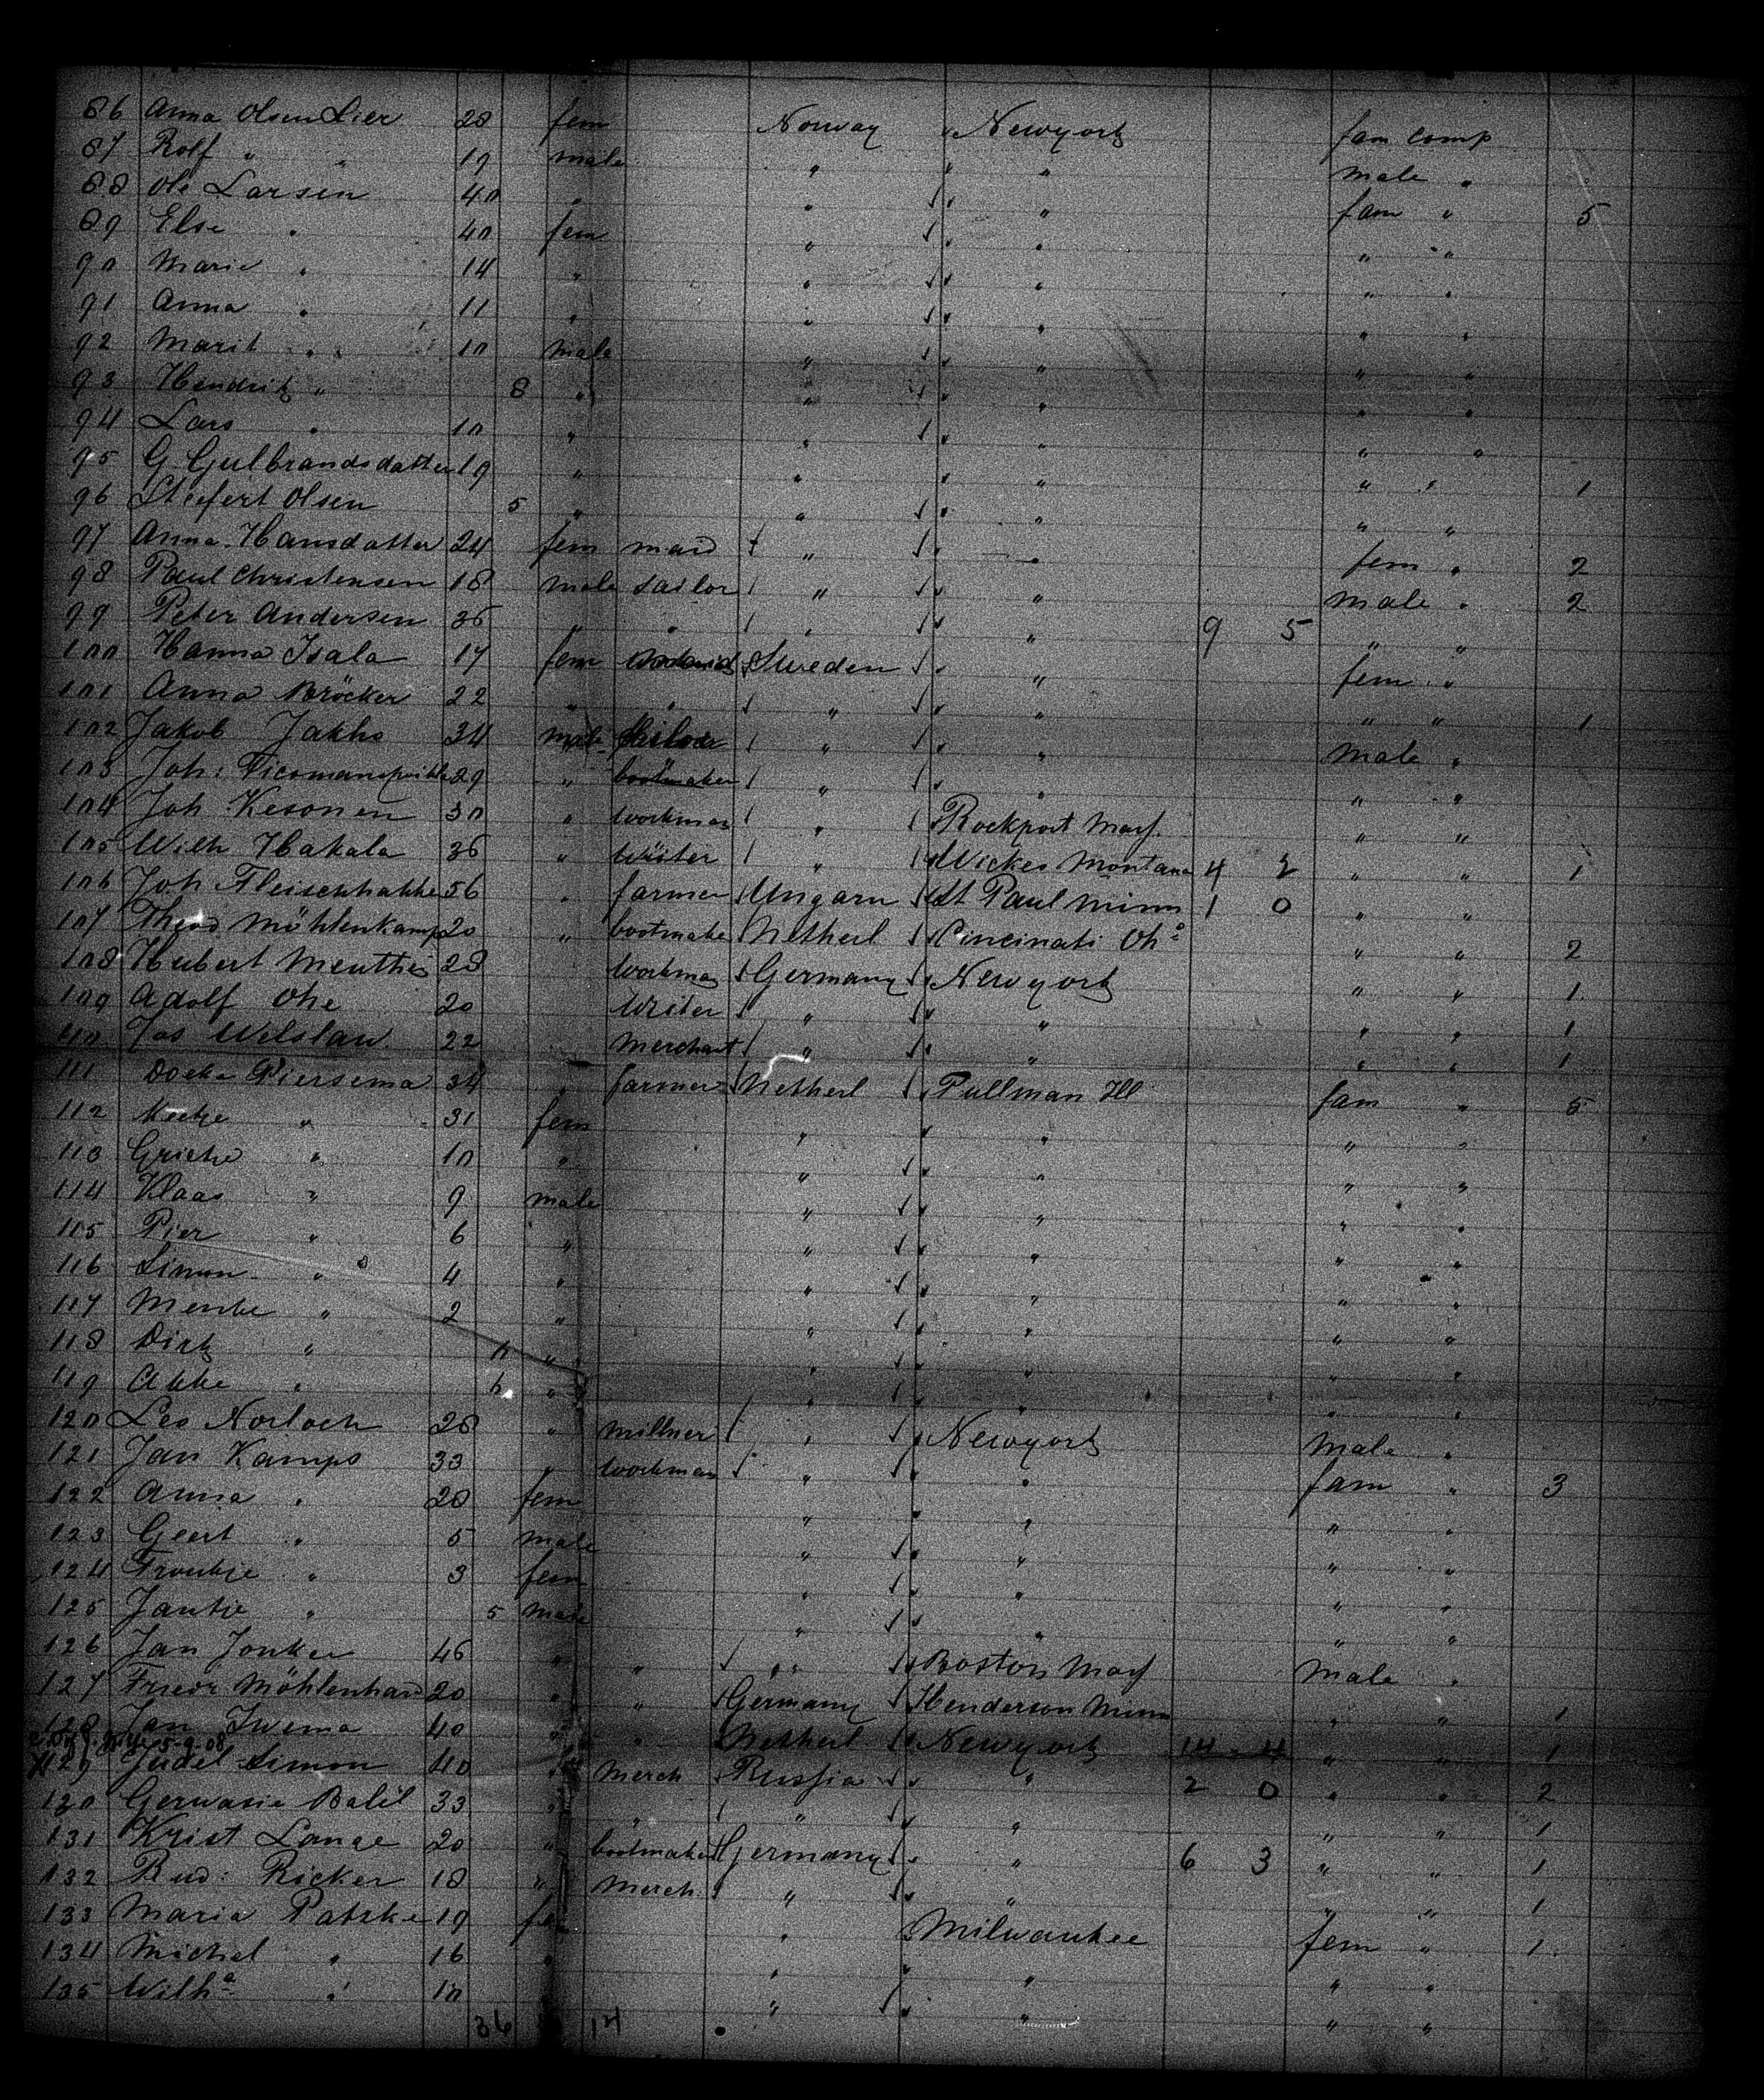 86 Anna Olsen Lier 28 fem Norway Newyork fam comp
87 Rolf " " 19 male " " male "
88 Ole Larsen 40 " " " fam " 5
89 Else " 40 fem " " " "
90 Marie " 14 " " " " "
91 Anna " 11 " " " " "
92 Marit " 10 male " " " "
93 Hendrik " 8 " " " " "
94 Lars " 10 " " " " "
95 G. Gulbrandsdatter 19 " " " " " 1
96 Olsen 5 " " " " "
97 Anna Hansdatter 24 fem maid " " fem " 2
98 Paul Christensen 18 male sailor " " male " 2
99 Peter Andersen 36 " " " " 9 5 " "
100 Hanna Isala 17 fem Sweden " fem "
101 Anna Bröcker 22 " " " " " " 1
102 Jakob Jakho 34 male " " male "
103 Joh: 29 " bootmaker " " " "
104 Joh Kesonen 30 " workman " Rockport Mass. " "
105 Wilh Hakala 36 " writer " Wickes Montana 4 2 " " 1
106 Joh Fleischhakke 56 " farmer Ungarn St Paul Minn 1 0 " "
107 Theod Möhlenkamp 20 " bootmake Netherl Cincinati Oho " " 2
108 Hubert Menthes 28 workman Germany Newyork " " 1
109 Adolf Ohe 20 writer " " " " 1
110 Jos Welslau 22 merchant " " " " 1
111 Doeke Piersema 34 " farmer Netherl Pullman Ill fam " 5
112 " 31 fem " " " "
113 Grietje " 10 " " " " "
114 Klaas " 9 male " " " "
115 Pier " 6 " " " " "
116 Simon " 4 " " " " "
117 Menke " 2 " " " " "
118 Dirk " " " " " "
119 Akke " " " " " "
120 Leo Norloch 28 " millner " Newyork male "
121 Jan Kamps 33 " workman " " fam " 3
122 Anna " 20 fem " " " "
123 Geert " 5 male " " " "
124 Froukje " 3 fem " " " "
125 Jantje " 5 male " " " "
126 Jan Jonker 46 " " " Boston Mass male "
127 Friedr Möhlenhau 20 " " Germany Henderson Minn " " 1
128 Jan Iwema 40 " " Netherl Newyork 14 4 " " 1
5-9-08
129 Judel Simon 40 " merch Russia " 2 0 " " 2
130 Gervasie Balil 33 " " " " " " 1
131 Krist Lange 20 " bootmaker Germany " 6 3 " " 1
132 Rud: Ricker 18 " merch " " " " 1
133 Maria Patzke 19 fem " Milwaukee fem " 1
134 Michel " 16 " " " " "
135 Wilha " 10 " " " "
36 14